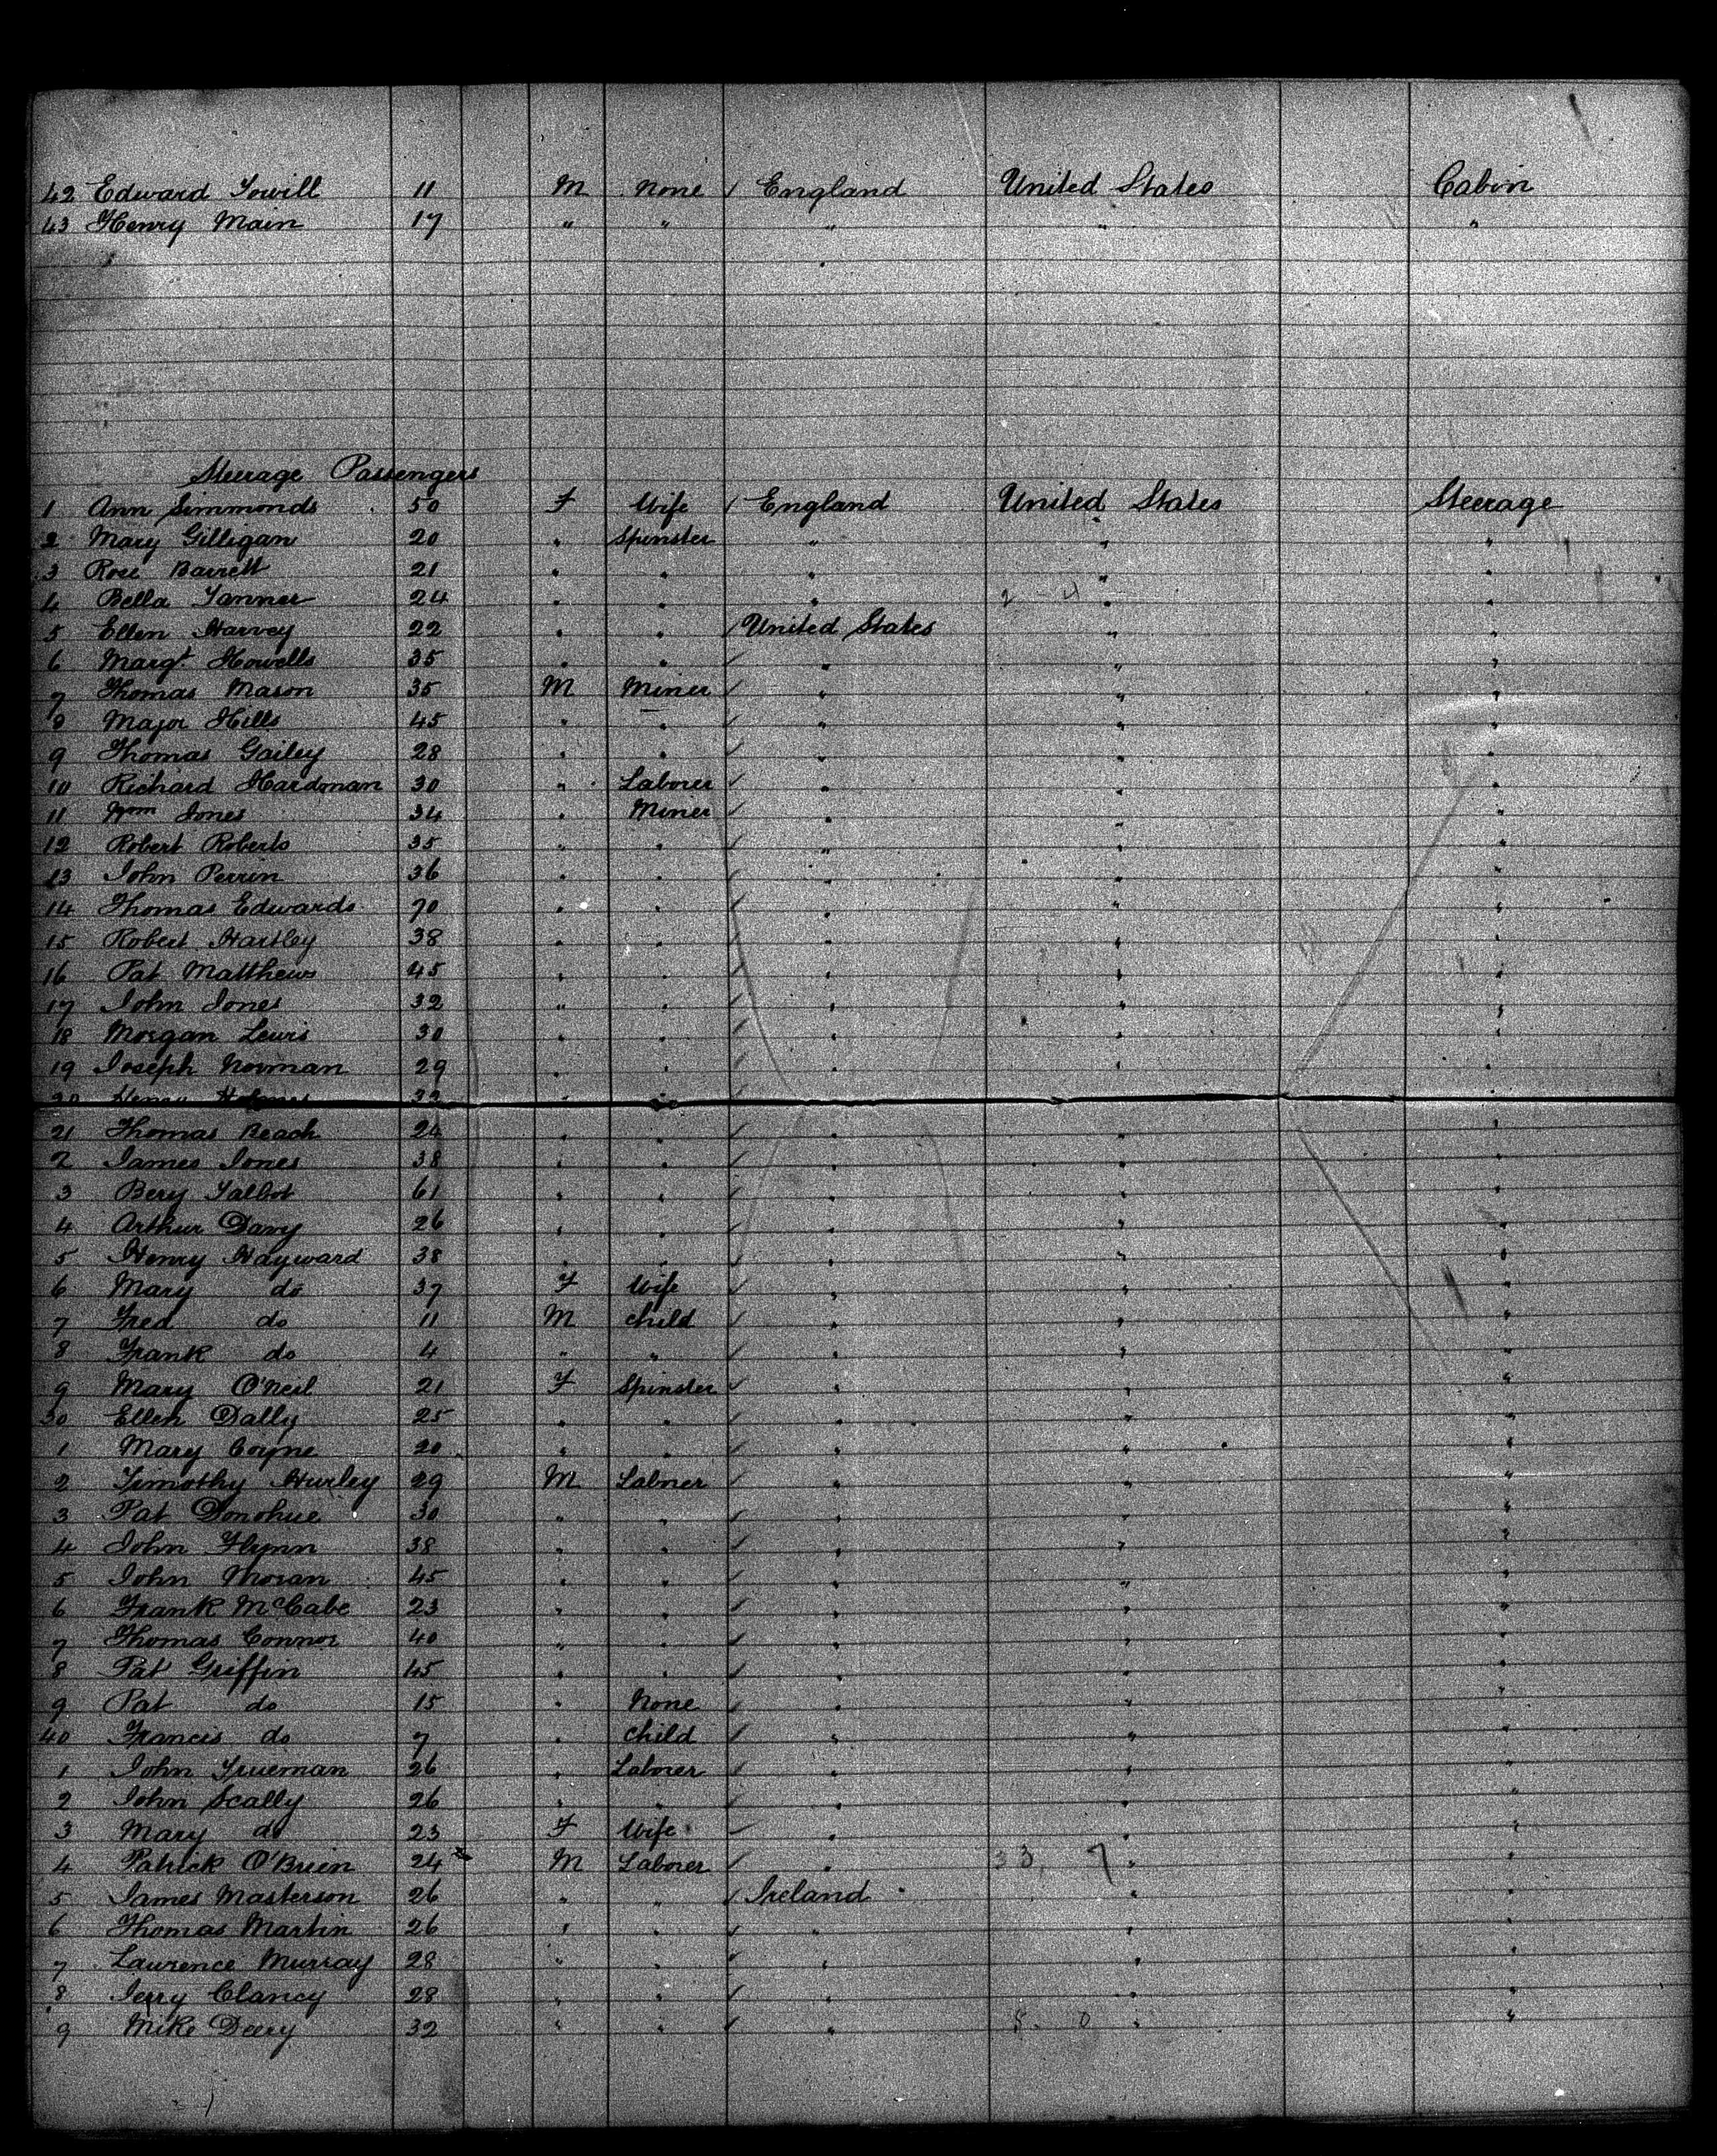 42 Edward Towill 11 M None England United States Cabin
43 Henry Main 17 " " " " "
Steerage Passengers
1 Ann Simmonds 50 F Wife England United States Steerage
2 Mary Gilligan 20 " Spinster " " "
3 Rose Barrett 21 " " " " "
4 Bella Tanner 24 " " " 2 - 4 " "
5 Ellen Harvey 22 " " United States " "
6 Margt Howells 35 " " " " "
7 Thomas Mason 35 M Miner " " "
8 Major Hills 45 " " " " "
9 Thomas Gailey 28 " " " " "
10 Richard Hardman 30 " Laborer " " "
11 Wm Jones 34 " Miner " " "
12 Robert Roberts 35 " " " " "
13 John Perrin 36 " " " " "
14 Thomas Edwards 70 " " " " "
15 Robert Hartley 38 " " " " "
16 Pat Matthews 45 " " " " "
17 John Jones 32 " " " " "
18 Morgan Lewis 30 " " " " "
19 Joseph Norman 29 " " " " "
20 Henry 32 " " "
21 Thomas Beach 24 " " " " "
2 James Jones 38 " " " " "
3 Benj Talbot 61 " " " " "
4 Arthur Davy 26 " " " " "
5 Henry Hayward 38 " " " " "
6 Mary do 37 F Wife " " "
7 Fred do 11 M child " " "
8 Frank do 4 " " " " "
9 Mary O'Neil 21 F Spinster " " "
30 Ellen Dally 25 " " " " "
1 Mary Coyne 20 " " " " "
2 Timothy Hurley 29 M Laborer " " "
3 Pat Donohue 30 " " " " "
4 John Flynn 38 " " " " "
5 John Moran 45 " " " " "
6 Frank McCabe 23 " " " " "
7 Thomas Connor 40 " " " " "
8 Pat Griffin 45 " " " " "
9 Pat do 15 " None " " "
40 Francis do 7 " child " " "
1 John Trueman 26 " Laborer " " "
2 John Scally 26 " " " " "
3 Mary do 23 F Wife " " "
4 Patrick O'Brien 24 M Laborer " 33, 7 " "
5 James Masterson 26 " " Ireland " "
6 Thomas Martin 26 " " " " "
7 Laurence Murray 28 " " " " "
8 Jerry Clancy 28 " " " " "
9 Mike Deery 32 " " " 8 - 0 " "